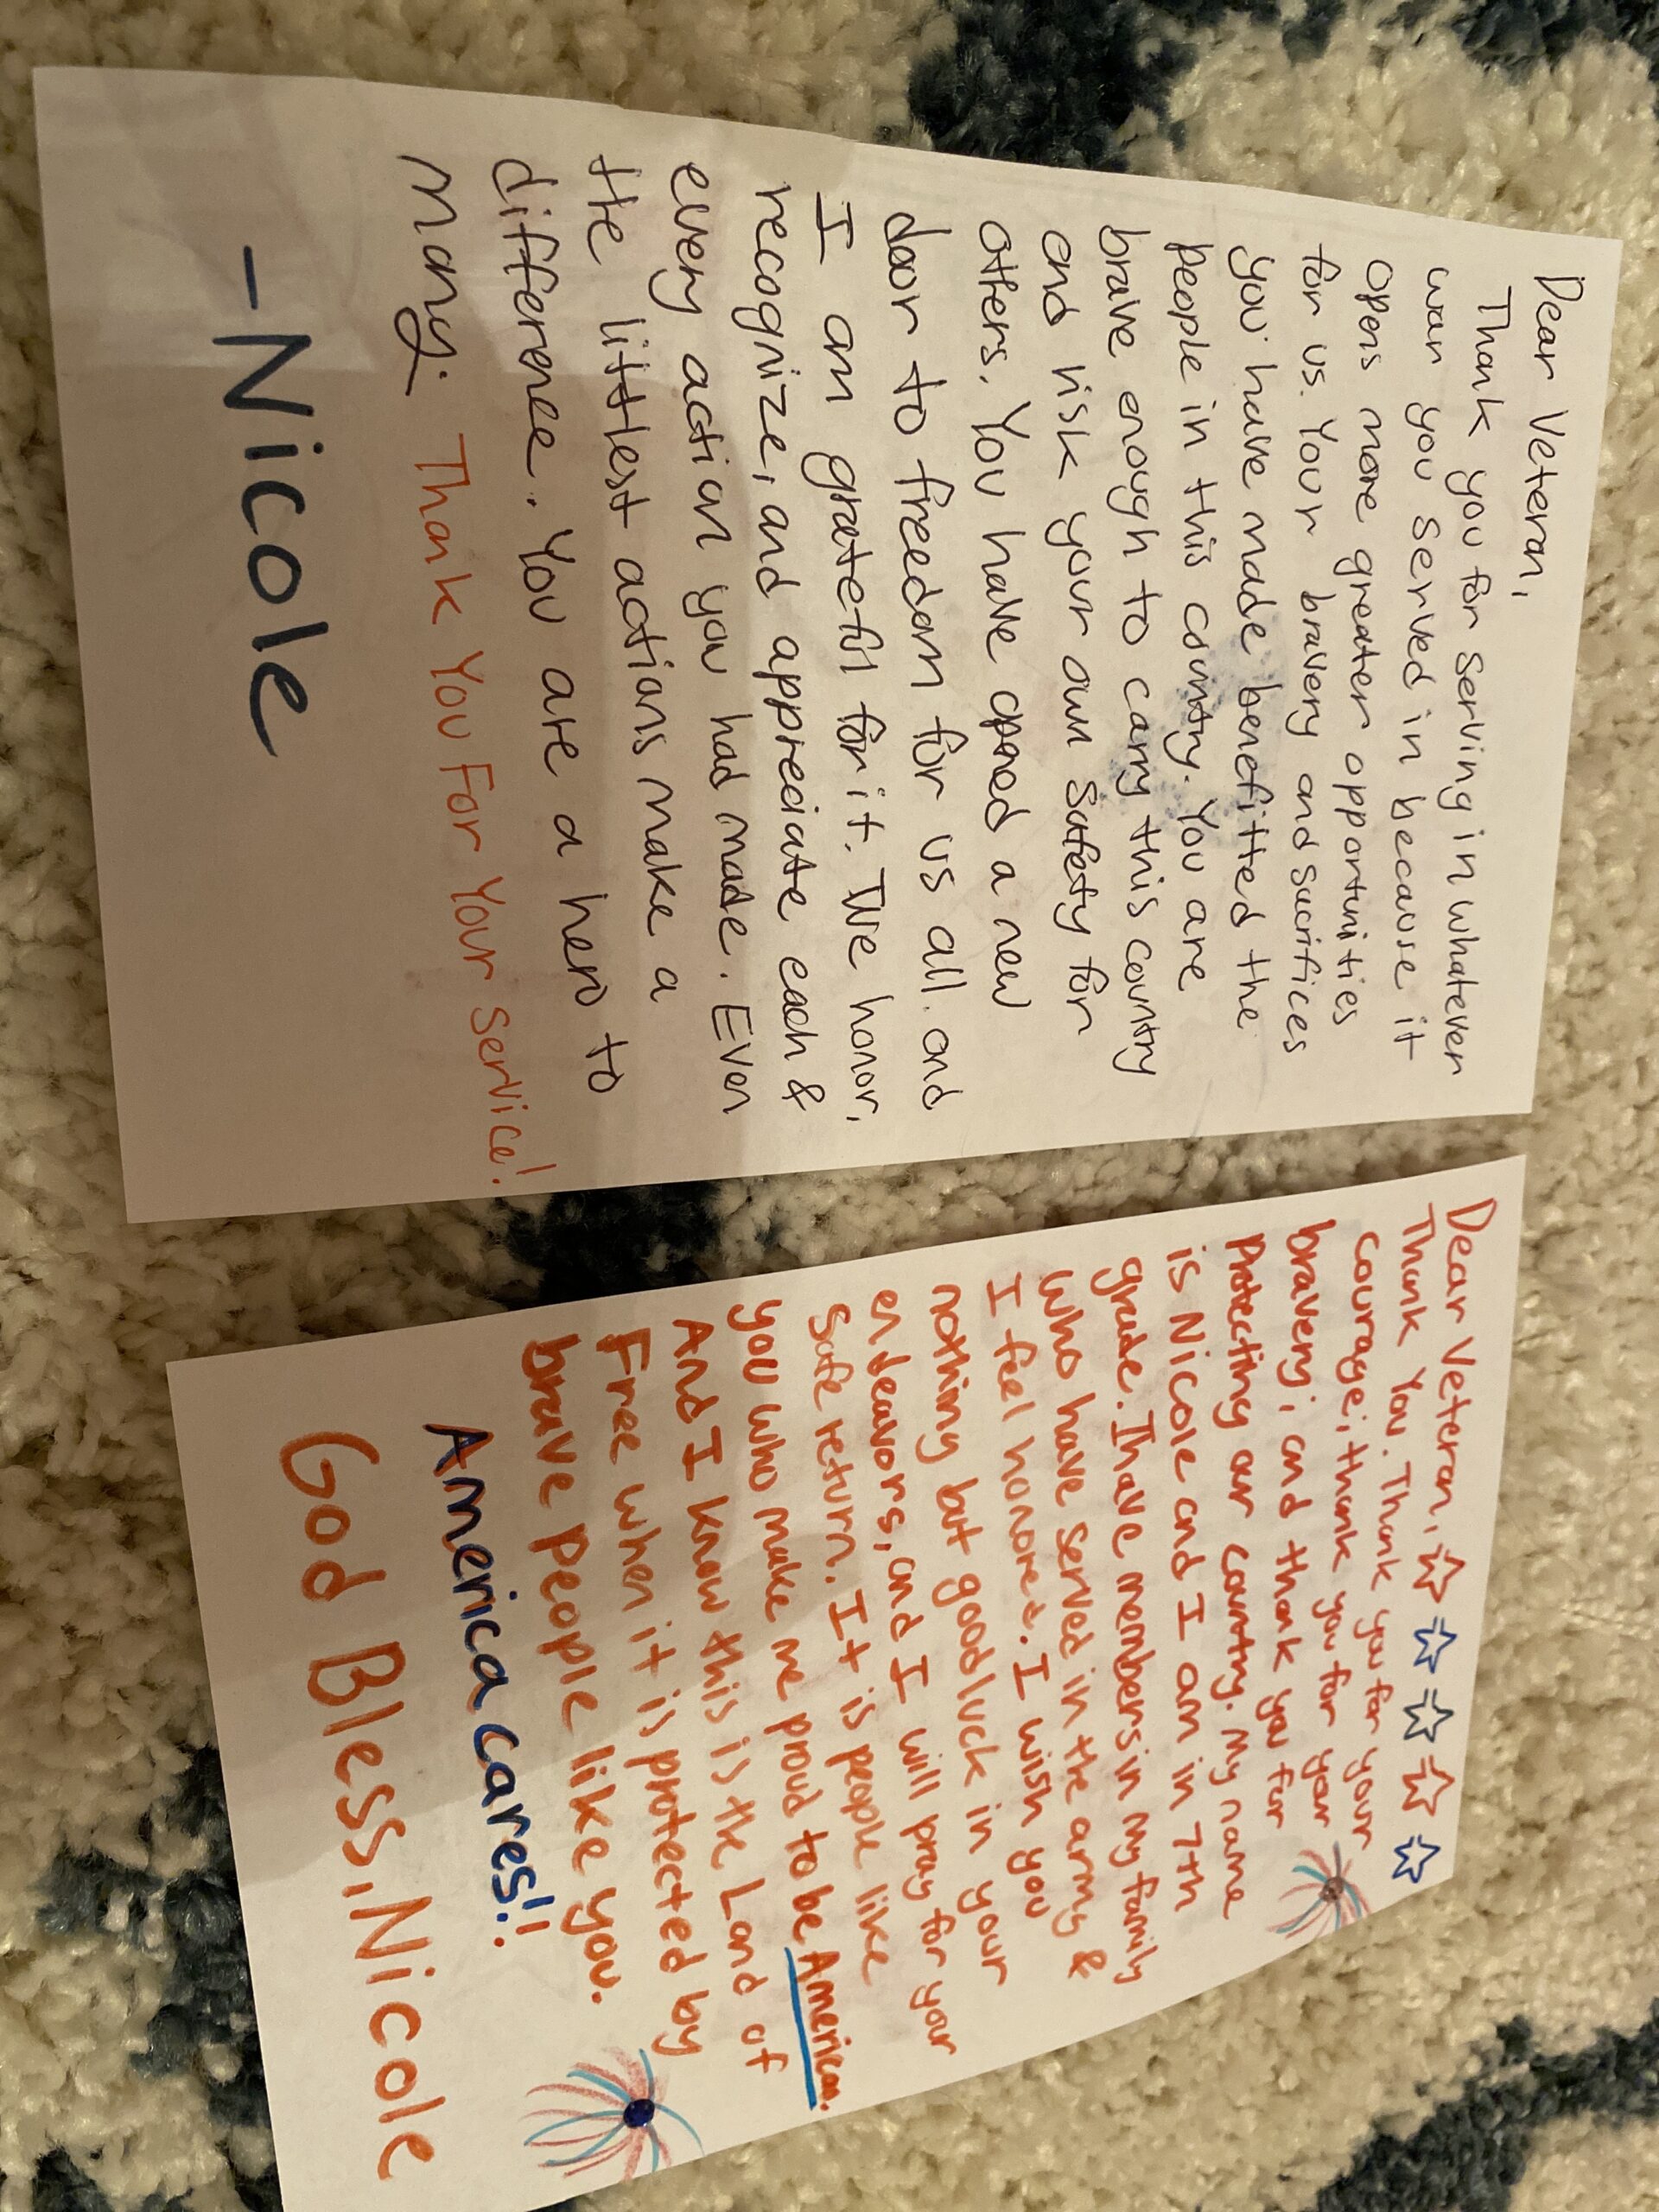 Dear Veteran,
Thank you for serving in whatever
war you served in because it
opens more greater opportunities
for us. Your bravery and sacrifices
you have made benefitted the
people in this country. You are
brave enough to carry this country
and risk your own safety for
others. You have opened a new
door to freedom for us all. and
I am grateful for it. We honor,
recognize, and appreciate each &
every action you had made. Even
the littlest actions make a
difference. You are a hero to
many. Thank You For Your Service!
- Nicole
Dear Veteran,
Thank You. Thank you for your
courage; thank you for your
bravery; and thank you for
protecting our country. My name
is Nicole and I am in 7th
grade. I have members in my family
who have served in the army &
I feel honored. I wish you
nothing but good luck in your
endeavors, and I will pray for your
safe return. It is people like
you who make me proud to be American.
And I know this is the Land of
Free when it is protected by
brave people like you.
America cares!!
God Bless, Nicole